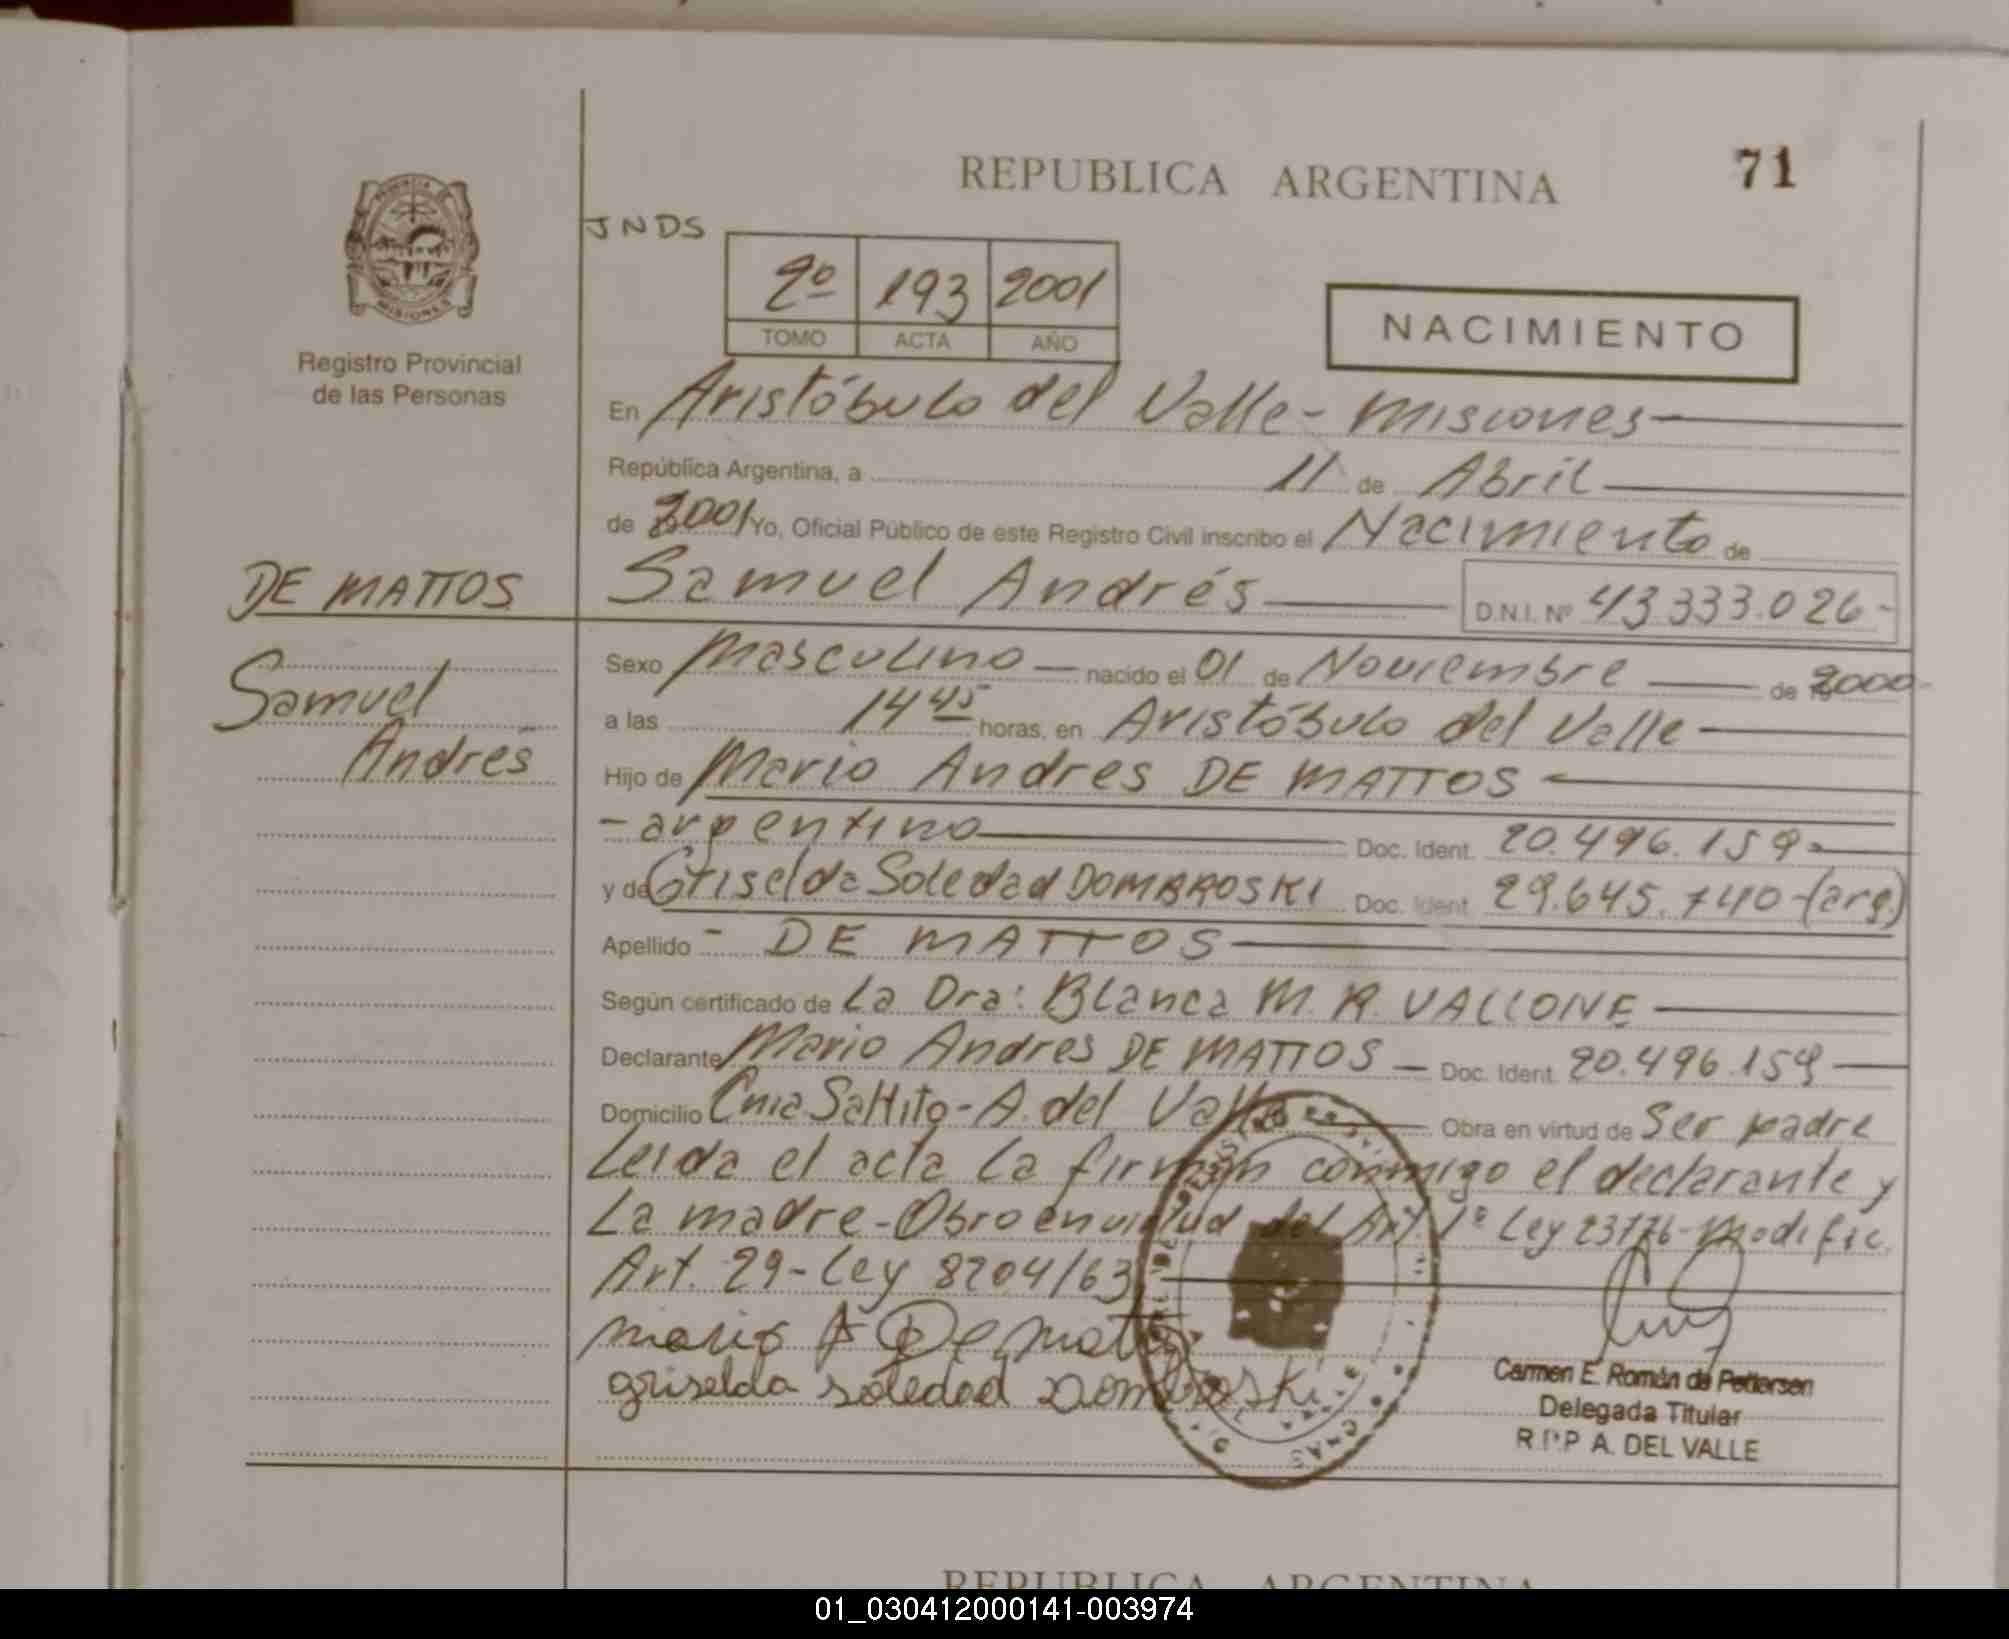 REPUBLICA ARGENTINA
71
PROVINCIA
MISIONES
Registro Provincial
de las Personas
JNDS
2º 193 2001
TOMO ACTA AÑO
NACIMIENTO
En Aristóbulo del Valle - Misiones
República Argentina, a 11 de Abril
de 2001 Yo, Oficial Público de este Registro Civil inscribo el Nacimiento de
DE MATTOS
Samuel Andrés
D.N.I. Nº 43.333.026-
Samuel
Andrés
Sexo Masculino nacido el 01 de Noviembre de 2000
a las 14 45 horas, en Aristóbulo del Valle
Hijo de Mario Andres DE MATTOS
- argentino Doc. Ident. 20.496.159-
y de Griselda Soledad DOMBROSKI Doc. Ident. 29.645.740-(arg.)
Apellido - DE MATTOS
Según certificado de La Dra: Blanca M. R. VALLONE
Declarante Mario Andres DE MATTOS Doc. Ident. 20.496.159
Domicilio Cnia Saltito - A. del Valle Obra en virtud de Ser padre
Leida el acta la firman conmigo el declarante y
La madre - Obro en virtud del Art. 1º Ley 23776 - Modific.
Art. 29 - Ley 8204/63
Mario A De Mattos
griselda soledad Dombroski
Carmen E. Román de Pettersen
Delegada Titular
R.P.P A. DEL VALLE
REPUBLICA ARGENTINA
01_030412000141-003974